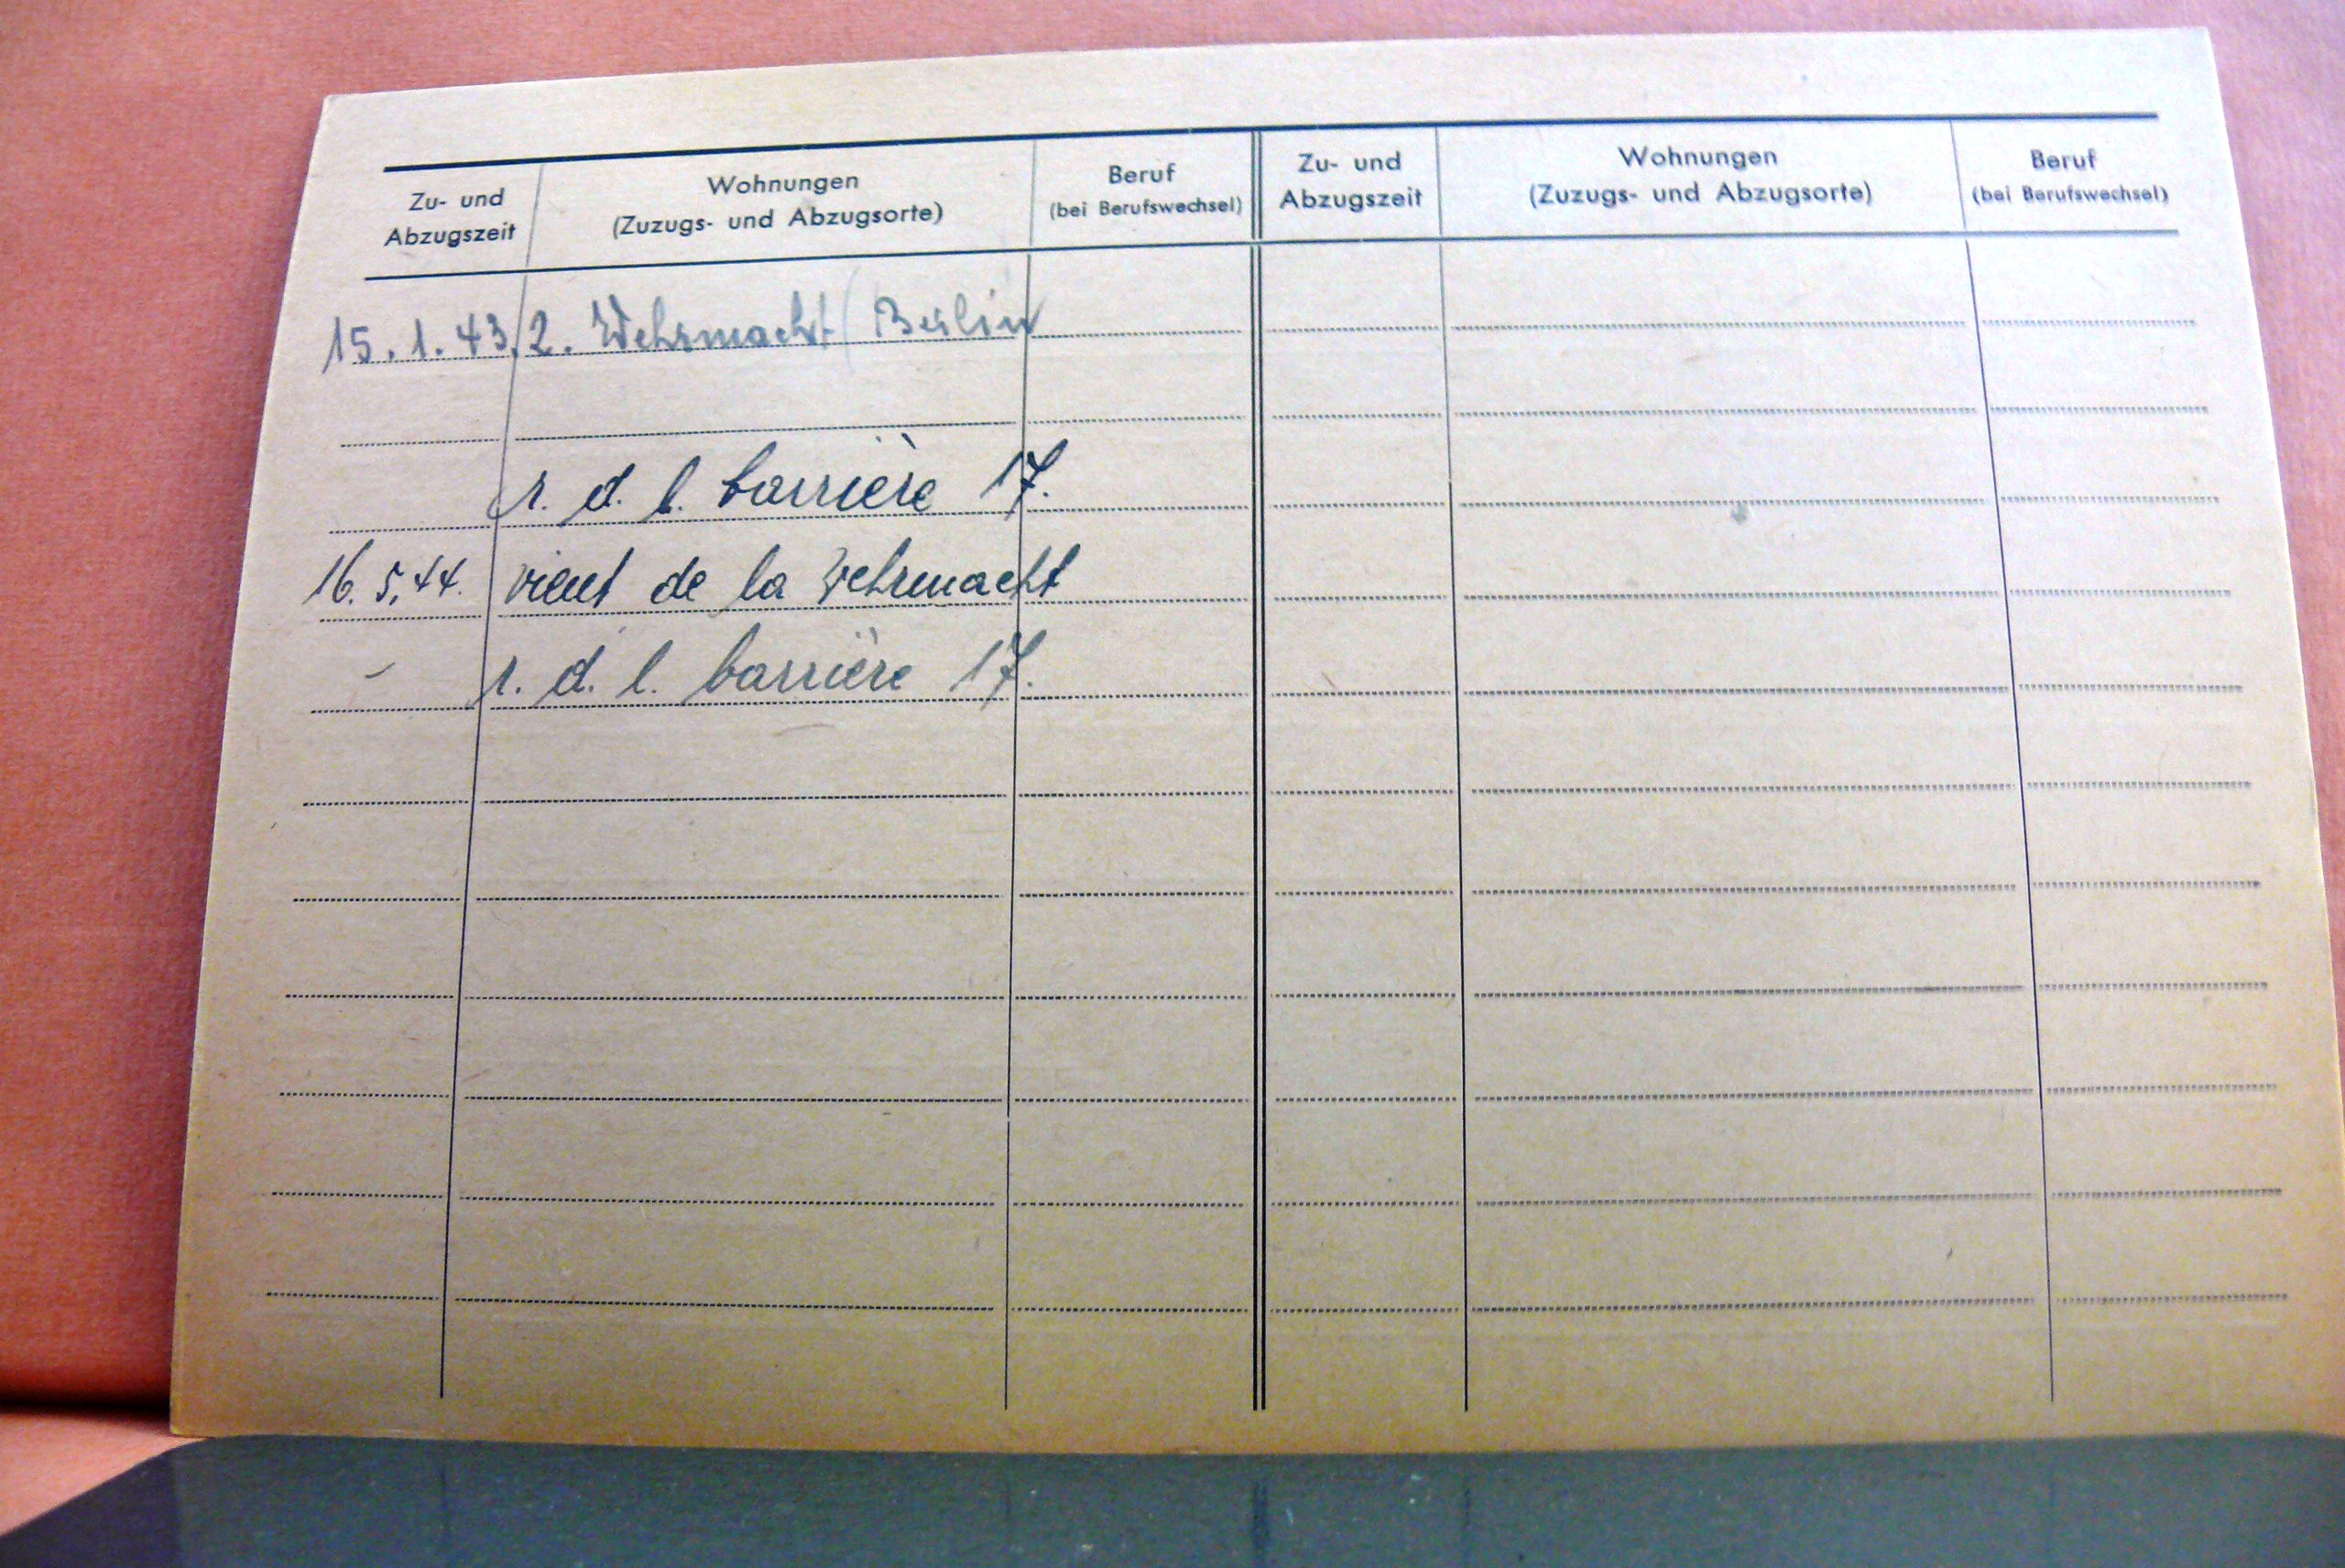 Zu- und
Abzugszeit
Wohnungen
(Zuzugs- und Abzugsorte)
Beruf
(bei Berufswechsel)
Zu- und
Abzugszeit
Wohnungen
(Zuzugs- und Abzugsorte)
Beruf
(bei Berufswechsel)
15.1.43. z. Wehrmacht (Berlin
r. d. l. barrière 17.
16.5.44. vient de la Wehrmacht
- r. d. l. barrière 17.